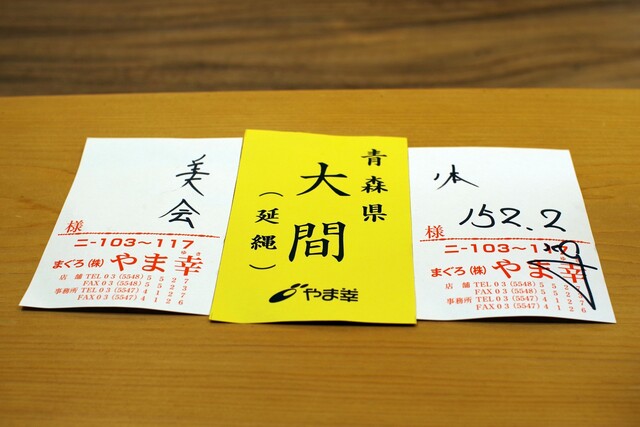 美会
様
ニ-103～117
まぐろ(株)やま幸
店舗 TEL 03 (5548) 5527
FAX 03 (5548) 5523
事務所 TEL 03 (5547) 4127
FAX 03 (5547) 4126
青森県
大間
(延縄)
やま幸
体
152.2
様
ニ-103～117
まぐろ(株)やま幸
店舗 TEL 03 (5548) 5527
FAX 03 (5548) 5523
事務所 TEL 03 (5547) 4127
FAX 03 (5547) 4126